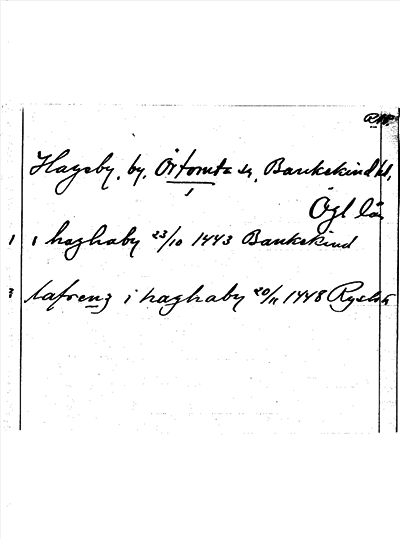 Hageby, by, Örtomta sn, Bankekind hd,
Ögl län
1 i haghaby 23/10 1443 Bankekind
2 lafrenz i haghaby 20/11 1448